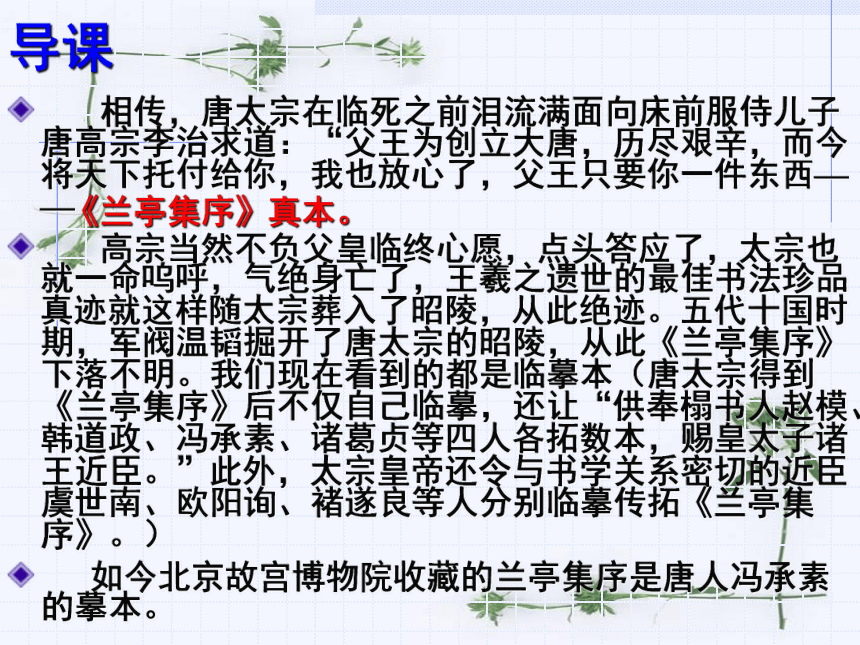 导课
相传，唐太宗在临死之前泪流满面向床前服侍儿子
唐高宗李治求道：“父王为创立大唐，历尽艰辛，而今
将天下托付给你，我也放心了，父王只要你一件东西—
—《兰亭集序》真本。
高宗当然不负父皇临终心愿，点头答应了，太宗也
就一命呜呼，气绝身亡了，王羲之遗世的最佳书法珍品
真迹就这样随太宗葬入了昭陵，从此绝迹。五代十国时
期，军阀温韬掘开了唐太宗的昭陵，从此《兰亭集序》
下落不明。我们现在看到的都是临摹本（唐太宗得到
《兰亭集序》后不仅自己临摹，还让“供奉榻书人赵模、
韩道政、冯承素、诸葛贞等四人各拓数本，赐皇太子诸
王近臣。”此外，太宗皇帝还令与书学关系密切的近臣
虞世南、欧阳询、褚遂良等人分别临摹传拓《兰亭集
序》。）
如今北京故宫博物院收藏的兰亭集序是唐人冯承素
的摹本。